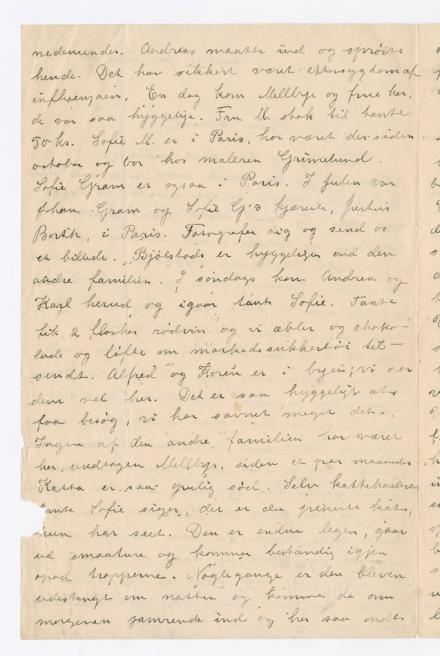 nedenunder. Andreas maatte ind og sprøite
hende. Det har sikkert været eftersygdom af
influenzain. En dag kom Mellbye og frue her,
de var saa hyggelige. Fru M. stak til tante
50 kr. Sofie M. er i Paris, har været der siden
october og bor hos maleren Grimelund.
Sofie Gram er ogsaa i Paris. I Julen var
Johan Gram og Sofie G's kjæreste, Justus
i Paris. Fotograferte sig og send os
et billede. Bjölstads er hyggeligere end den
andre familien. I søndags kom Andrea og
Karl herud og igaar tante Sofie. Tante
fik 2 flasker rødvin og vi æbler og choko-
lade og løfte om markedssukkertöi til-
sendt. Alfred og Koren er i byen; vi ser
dem ved her. Det er saa hyggeligt at
faa besøg, vi har savnet meget det.
Ingen af den andre familien har været
her, undtagen Mellbys, siden et par maaneder.
Katta er saa grulig sød. Selv
tante Sofie siger, det er den peneste kat,
hun har seet. Den er endnu legen, gaar
ud smaature og kommer bestandig igjen
opad trapperne. Noglegange er den bleven
udestengt om natten og kommer da om
morgenen jamrende ind og har saa ondt